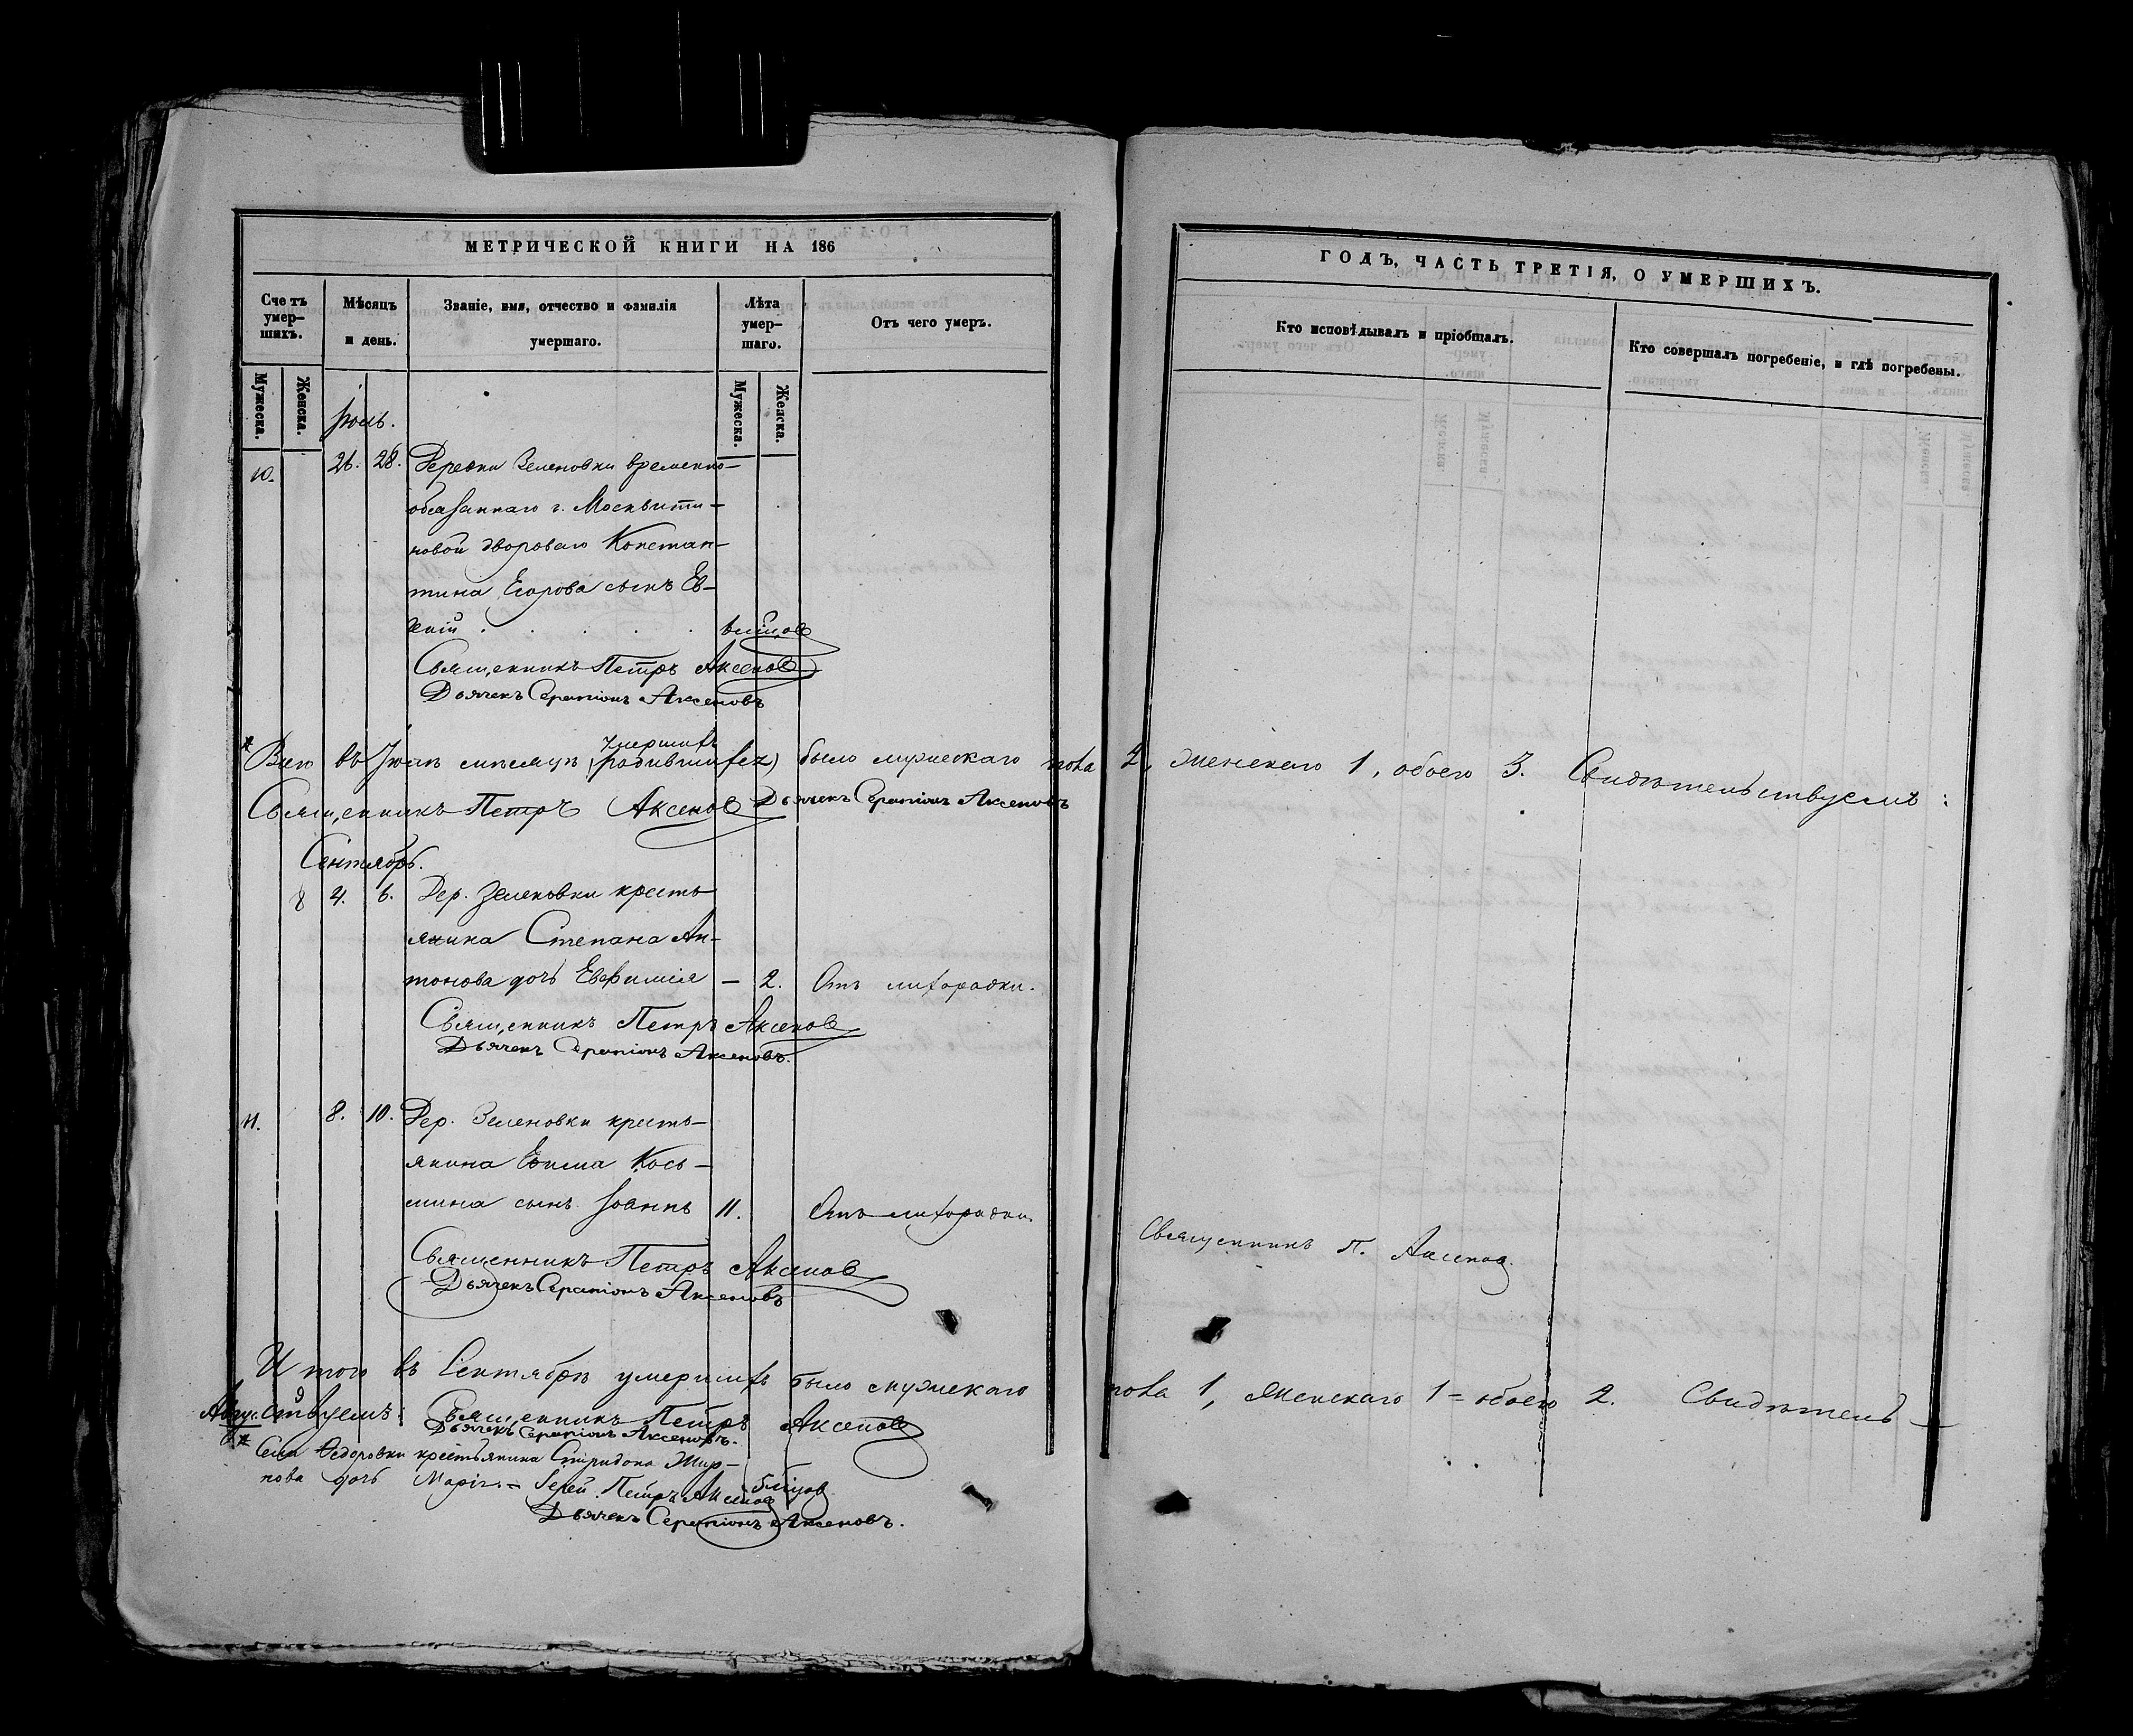 МЕТРИЧЕСКОЙ КНИГИ НА 186
Счетъ умер-шихъ.
Мѣсяцъ и день.
Званіе, имя, отчество и фамилія умершаго.
Лѣта умер-шаго.
Отъ чего умеръ.
Мужеска.
Женска.
Мужеска.
Женска.
Іюль.
10. 26. 28. Деревни Зеленовки временно-
обязаннаго г. Москвити-
новой двороваго Констан-
тина Егорова сынъ Ев-
Священникъ Петръ Аксенов
Дьячекъ Серапіонъ Аксеновъ
въ мѣсяцѣ умершихъ (родившихся) было мужескаго пола
Священникъ Петръ Аксенов Дьячекъ Серапіонъ Аксеновъ
Сентябрь.
8 4. 6. Дер. Зеленовки кресть-
янина Степана Ан-
тонова дочь Евфимія – 2. Отъ лихорадки.
Священникъ Петръ Аксенов
Дьячекъ Серапіонъ Аксеновъ.
11. 8. 10. Дер. Зеленовки кресть-
янина Кось-
мина сынъ Іоаннъ 11. Отъ лихорадки
Священникъ Петръ Аксенов
Дьячекъ Серапіонъ Аксеновъ
Итого въ Сентябрѣ умершихъ было мужескаго
ствуемъ: Священникъ Петръ Аксенов
Дьячекъ Серапіонъ Аксеновъ.
Села Ѳедоровки крестьянина Спиридона
дочь Марія – Іерей Петръ Аксенов
Дьячекъ Серапіонъ Аксеновъ.
ГОДЪ, ЧАСТЬ ТРЕТІЯ, О УМЕРШИХЪ.
Кто исповѣдывалъ и пріобщалъ.
Кто совершалъ погребеніе, и гдѣ погребены.
2, женскаго 1, обоего 3. Свидѣтельствуемъ:
Священникъ П. Аксенов.
пола 1, женскаго 1 = обоего 2. Свидѣтель–